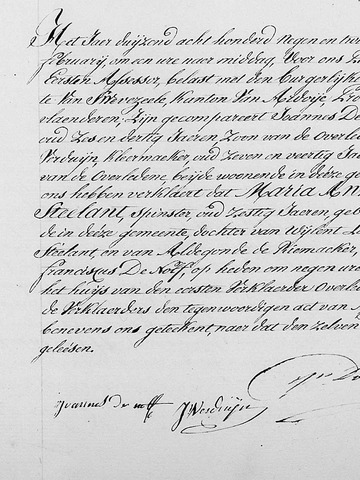 Het Jaer duijzend acht honderd Negen en
february, om een ure naer middag, Voor ons
Eersten Assessor, belast met den Burgerlijke
te Van Zwevezeele, Kanton Van Ardoije
vlaenderen, Zijn gecompareert Joannes De
oud Zes en dertig Jaeren, Zoon van de Overle
Verduijn, Kleermaeker, oud Zeven en veertig Ja
van de Overledene, beijde woonende in deze ge
ons hebben verklaert dat Maria Ann
Steelant, Spinster, oud Zestig Jaeren, ge
de in deze gemeente, dochter van Wijlent
Steelant, en van Aldegonde De Riemacker,
Franciscus De Nolf, op heden om negen ure
het huijs van den eersten Verklaerder Overle
de Verklaerders den tegenwoordigen act van
benevens ons geteekent, naer dat den zelven
geleesen.
joannes de nolf J Verduijn